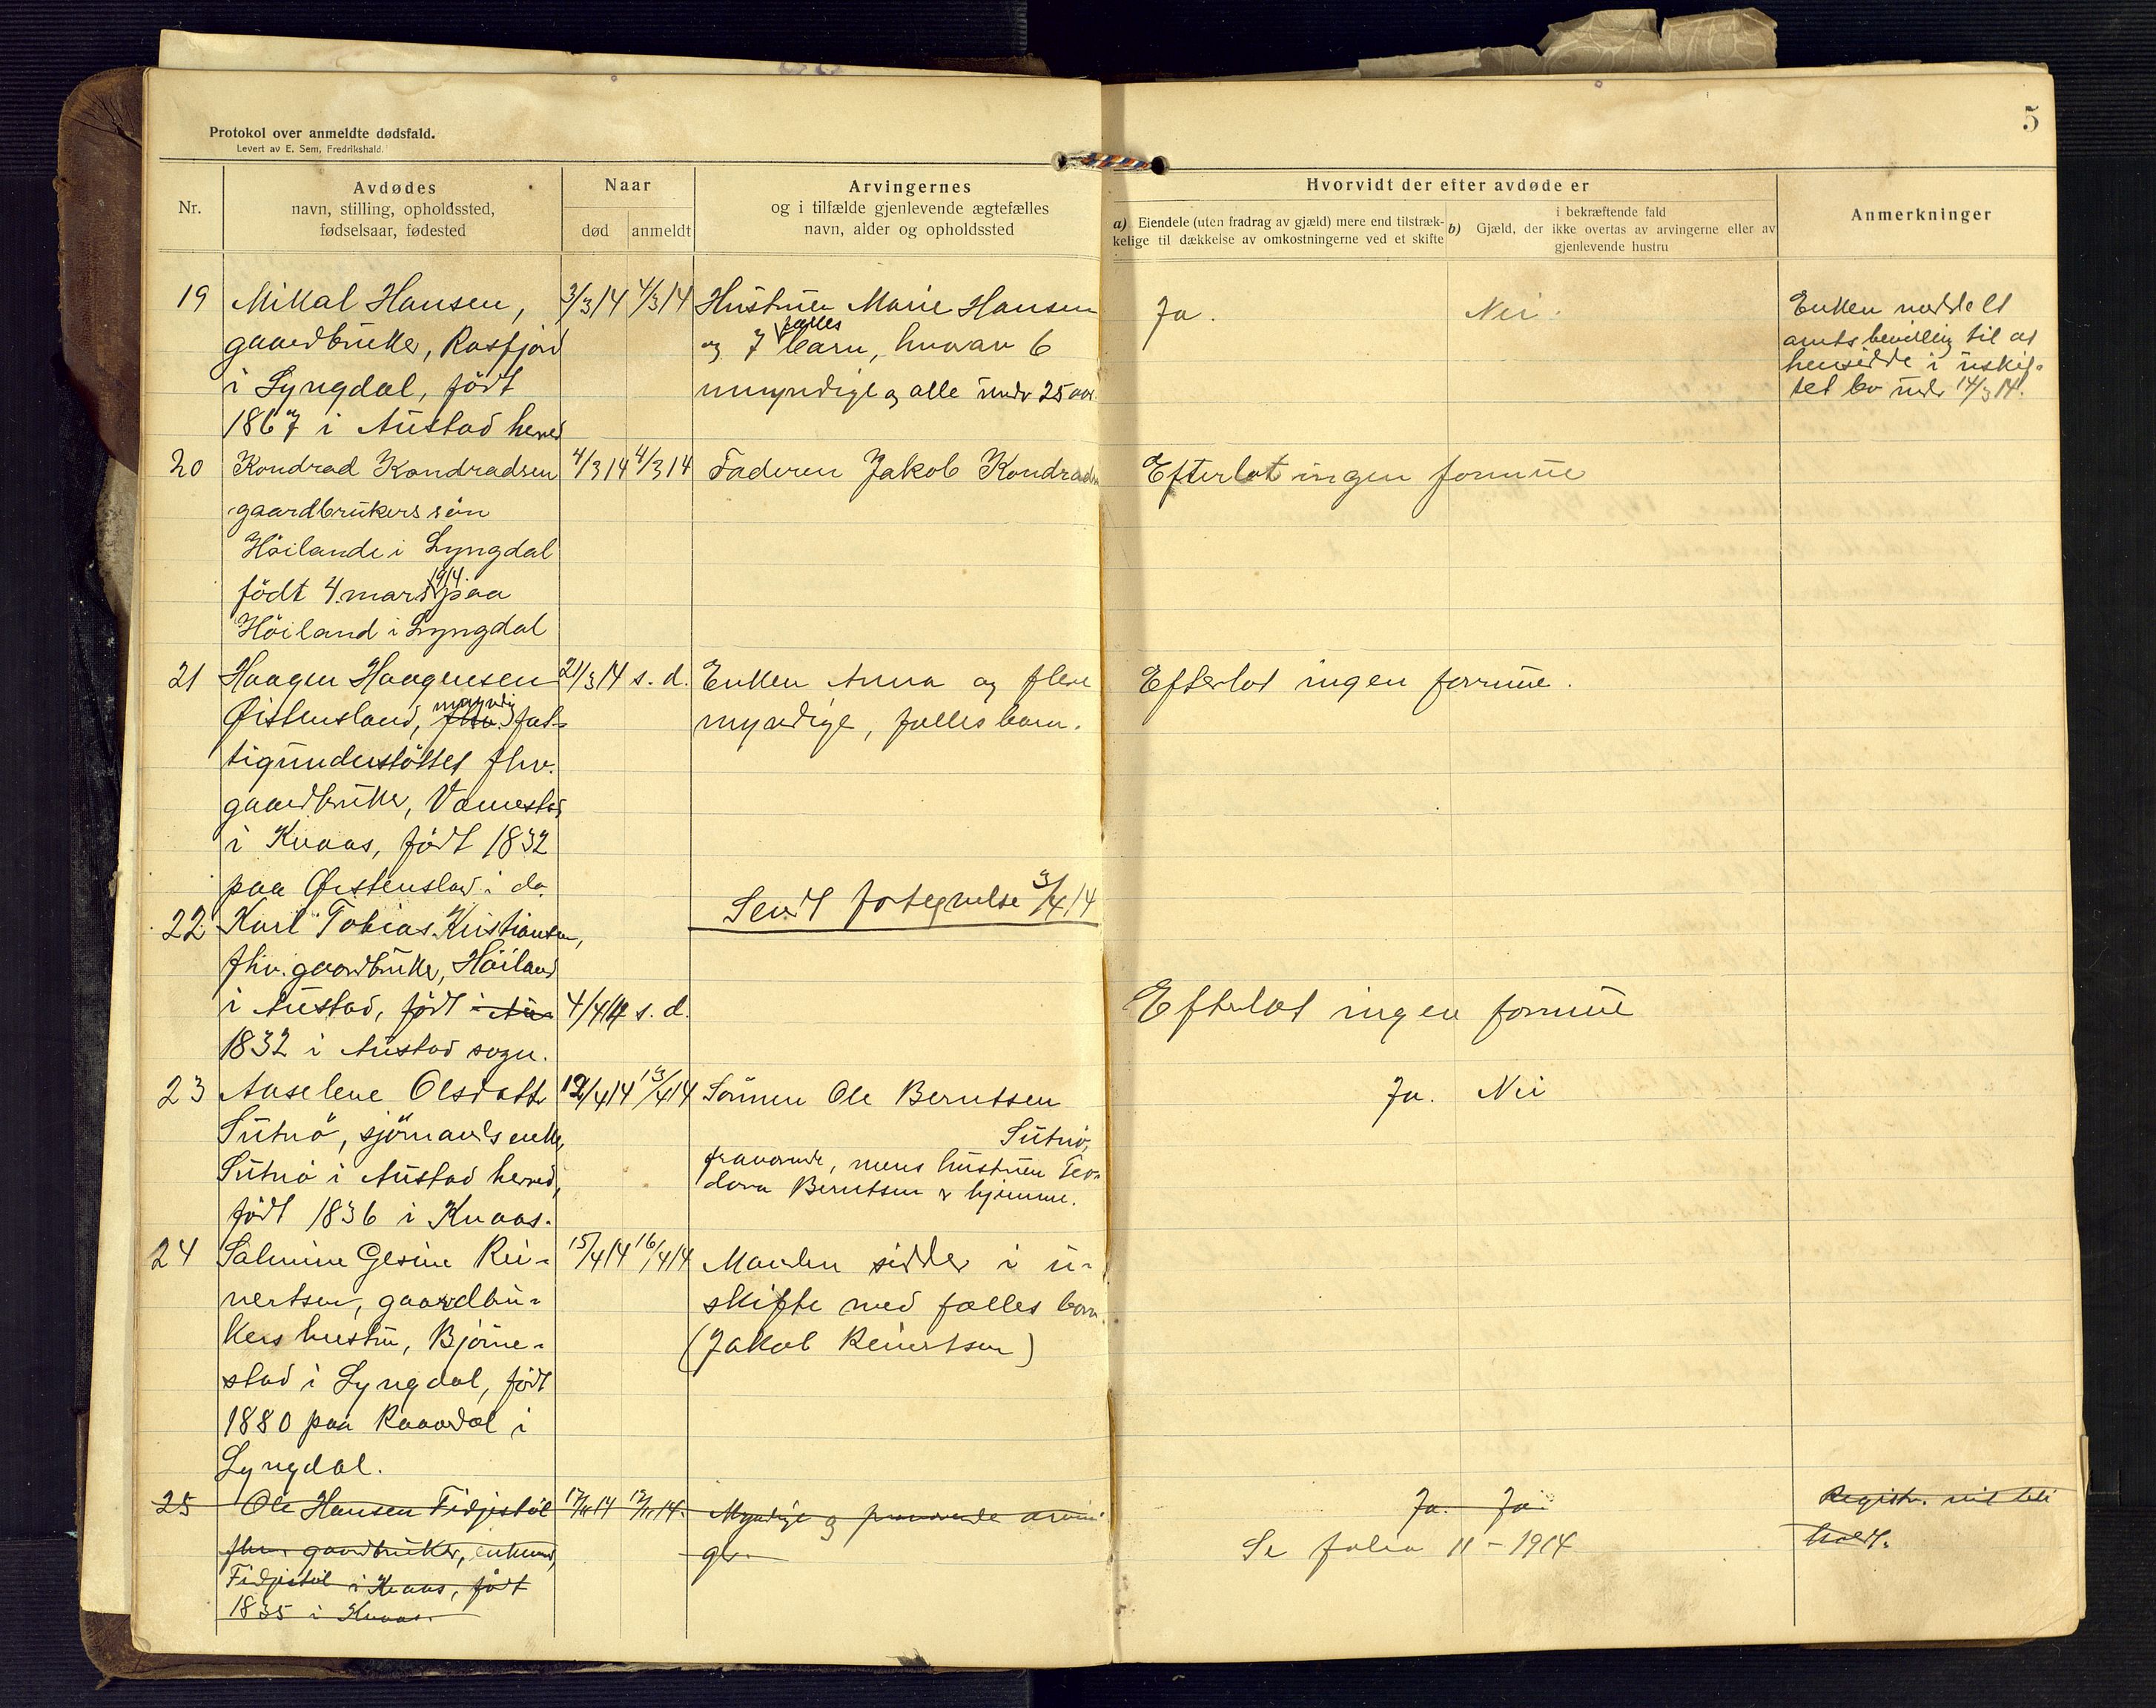 5
Protokol over anmeldte dødsfald.
Levert av E. Sem, Fredrikshald.
Nr.
Avdødes
navn, stilling, opholdssted,
fødselsaar, fødested
Naar
død
anmeldt
Arvingernes
og i tilfælde gjenlevende ægtefælles
navn, alder og opholdssted
Hvorvidt der efter avdøde er
a) Eiendele (uten fradrag av gjæld) mere end tilstræk-
kelige til dækkelse av omkostningerne ved et skifte
i bekræftende fald
b) Gjæld, der ikke overtas av arvingerne eller av
gjenlevende hustru
Anmerkninger
19
Mikal Hansen,
gaardbruker, Rosfjord
i Lyngdal, födt
1867 i Austad herred
3/3 14
4/3 14
Hustruen Marie Hansen
og 7 fælles barn, hvorav 6
umyndige og alle under 25 aar.
Ja.
Nei.
Enken meddelt
amtsbevilling til at
hensidde i uskif-
tet bo under 14/3 14.
20
Kondrad Kondradsen
gaardbrukers sön
Höilande i Lyngdal
födt 4. mars 1914 paa
Höiland i Lyngdal
4/3 14
4/3 14
Faderen Jakob Kondradsn
Efterlot ingen formue
21
Haagen Haagensen
Øistensland, fhv. myndig fat-
tigunderstöttet fhv.
gaardbruker, Vamestad
i Kvaas, födt 1832
paa Øistensland i do.
21/3 14
s. d.
Enken Anna og flere
myndige, fælles barn.
Efterlot ingen formue.
Sendt fortegnelse 3/4 14
22
Karl Tobias Kristiansen,
fhv. gaardbruker, Höiland
i Austad, födt i Au-
1832 i Austad sogn.
4/4 14
s. d.
Efterlot ingen formue
23
Anselene Olsdatter
Sütnö, sjömands enke,
Sütnö i Austad herred,
födt 1836 i Kvaas.
12/4 14
13/4 14
Sönnen Ole Berntsen
Sütnö,
fraværende, mens hustruen Teo-
dora Berntsen er hjemme.
Ja.
Nei
24
Salmine Gesine Rei-
nertsen, gaardbru-
kers hustru, Björne-
stad i Lyngdal, födt
1880 paa Raavdal i
Lyngdal.
15/4 14
16/4 14
Manden sidder i u-
skifte med fælles barn.
(Jakob Reinertsen)
25
Ole Hansen Fidjestöl
fhv. gaardbruker, enkemand,
Fidjestöl i Kvaas, födt
1835 i Kvaas.
Myndige og fraværende arvin-
ger.
Ja.
Ja.
Se folio 11 - 1914
Registr. vil bli
holdt.